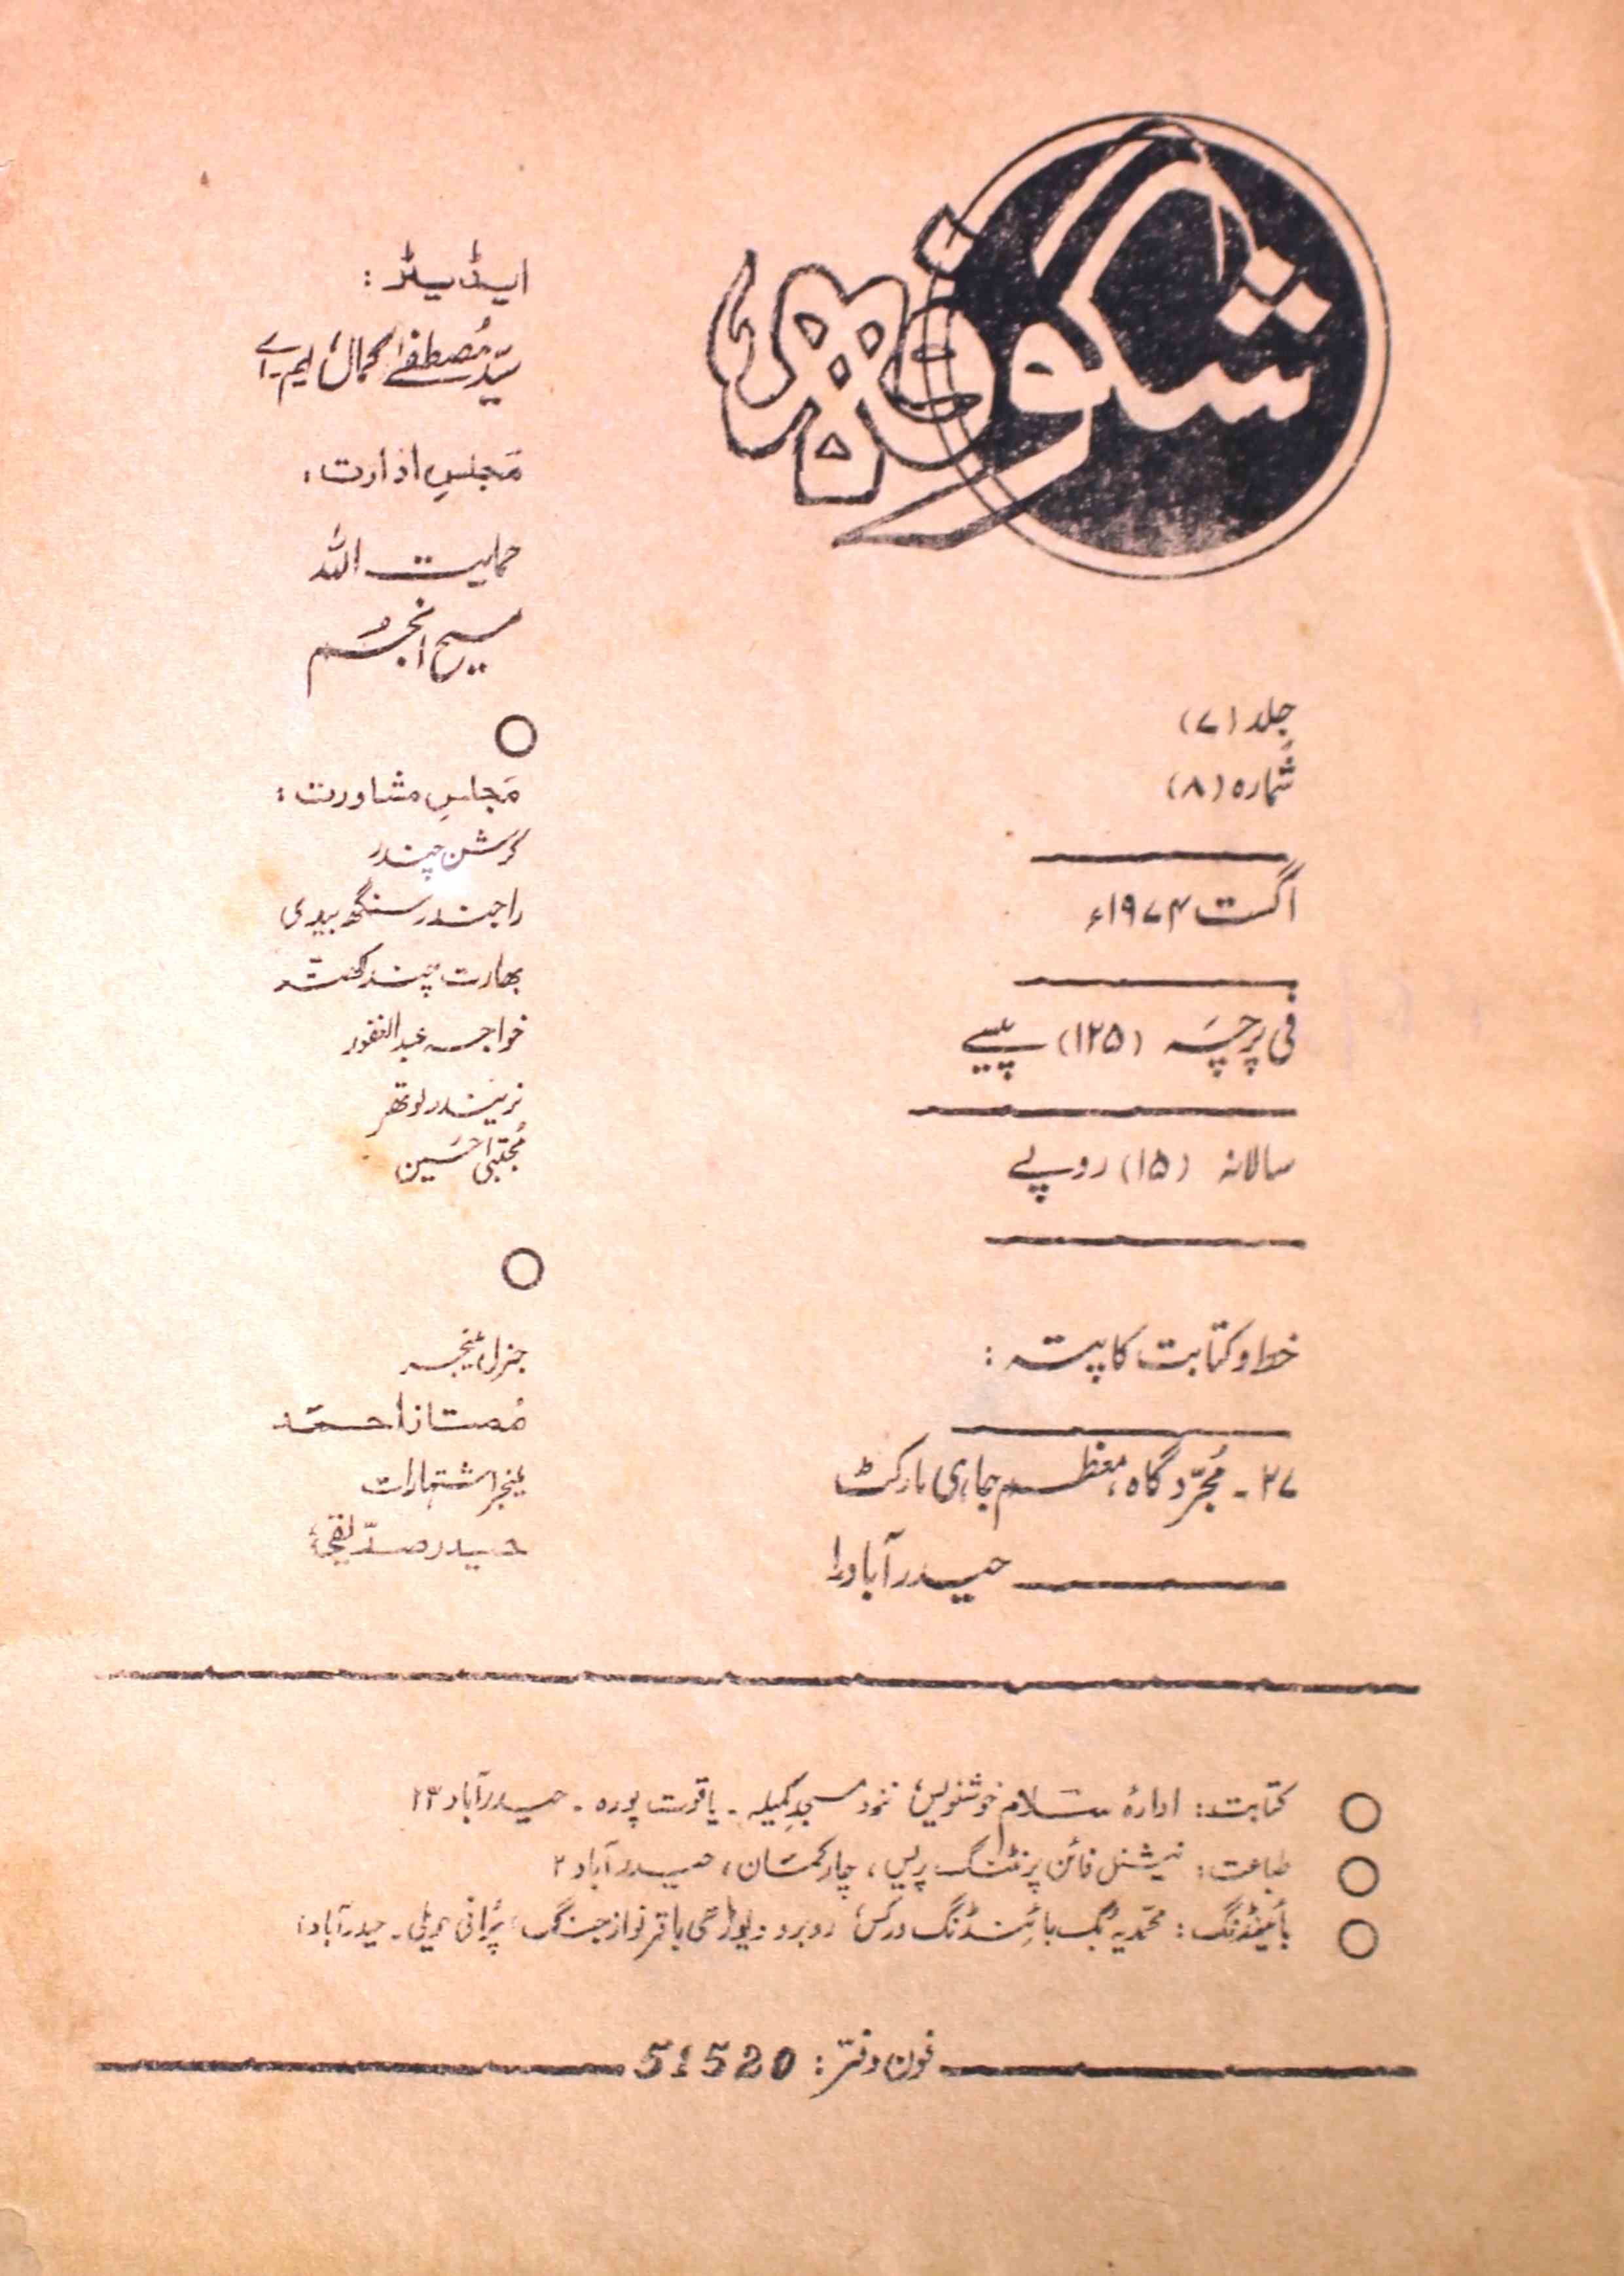 شگوفہ
جلد (۷)
شمارہ (۸)
اگست ۱۹۷۴ء
فی پرچہ (۱۲۵) پیسے
سالانہ (۱۵) روپے
خط و کتابت کا پتہ :
۲۷۔ مُجرّد گاہ، معظم جاہی مارکٹ
حیدرآباد۱
ایڈیٹر :
سیّد مُصطفےٰ کمال، ایم۔اے
مَجلسِ ادارت :
حمایت اللہ
مسیح انجُم
مَجلسِ مشاورت :
کرشن چندر
راجندر سنگھ بیدی
بھارت چند کھنّہ
خواجہ عبدالغفور
نریندر لوتھر
مُجتبیٰ حسین
جنرل منیجر
مُمتاز احمد
منیجر اشتہارات
حیدر صدّیقی
کتابت : ادارۂ سَلام خوشنویس، نزد مسجدِ کمیلہ ۔ یاقوت پورہ ۔ حیدرآباد ۲۳
طباعت : نیشنل فائن پرنٹنگ پریس ، چارکمان ، حیدرآباد ۲
بائینڈنگ : محمّدیہ بُک بائنڈنگ ورکس، روبرو دیوڑھی باقر نواز جنگ، پُرانی حویلی ۔ حیدرآباد
فون دفتر : 51520